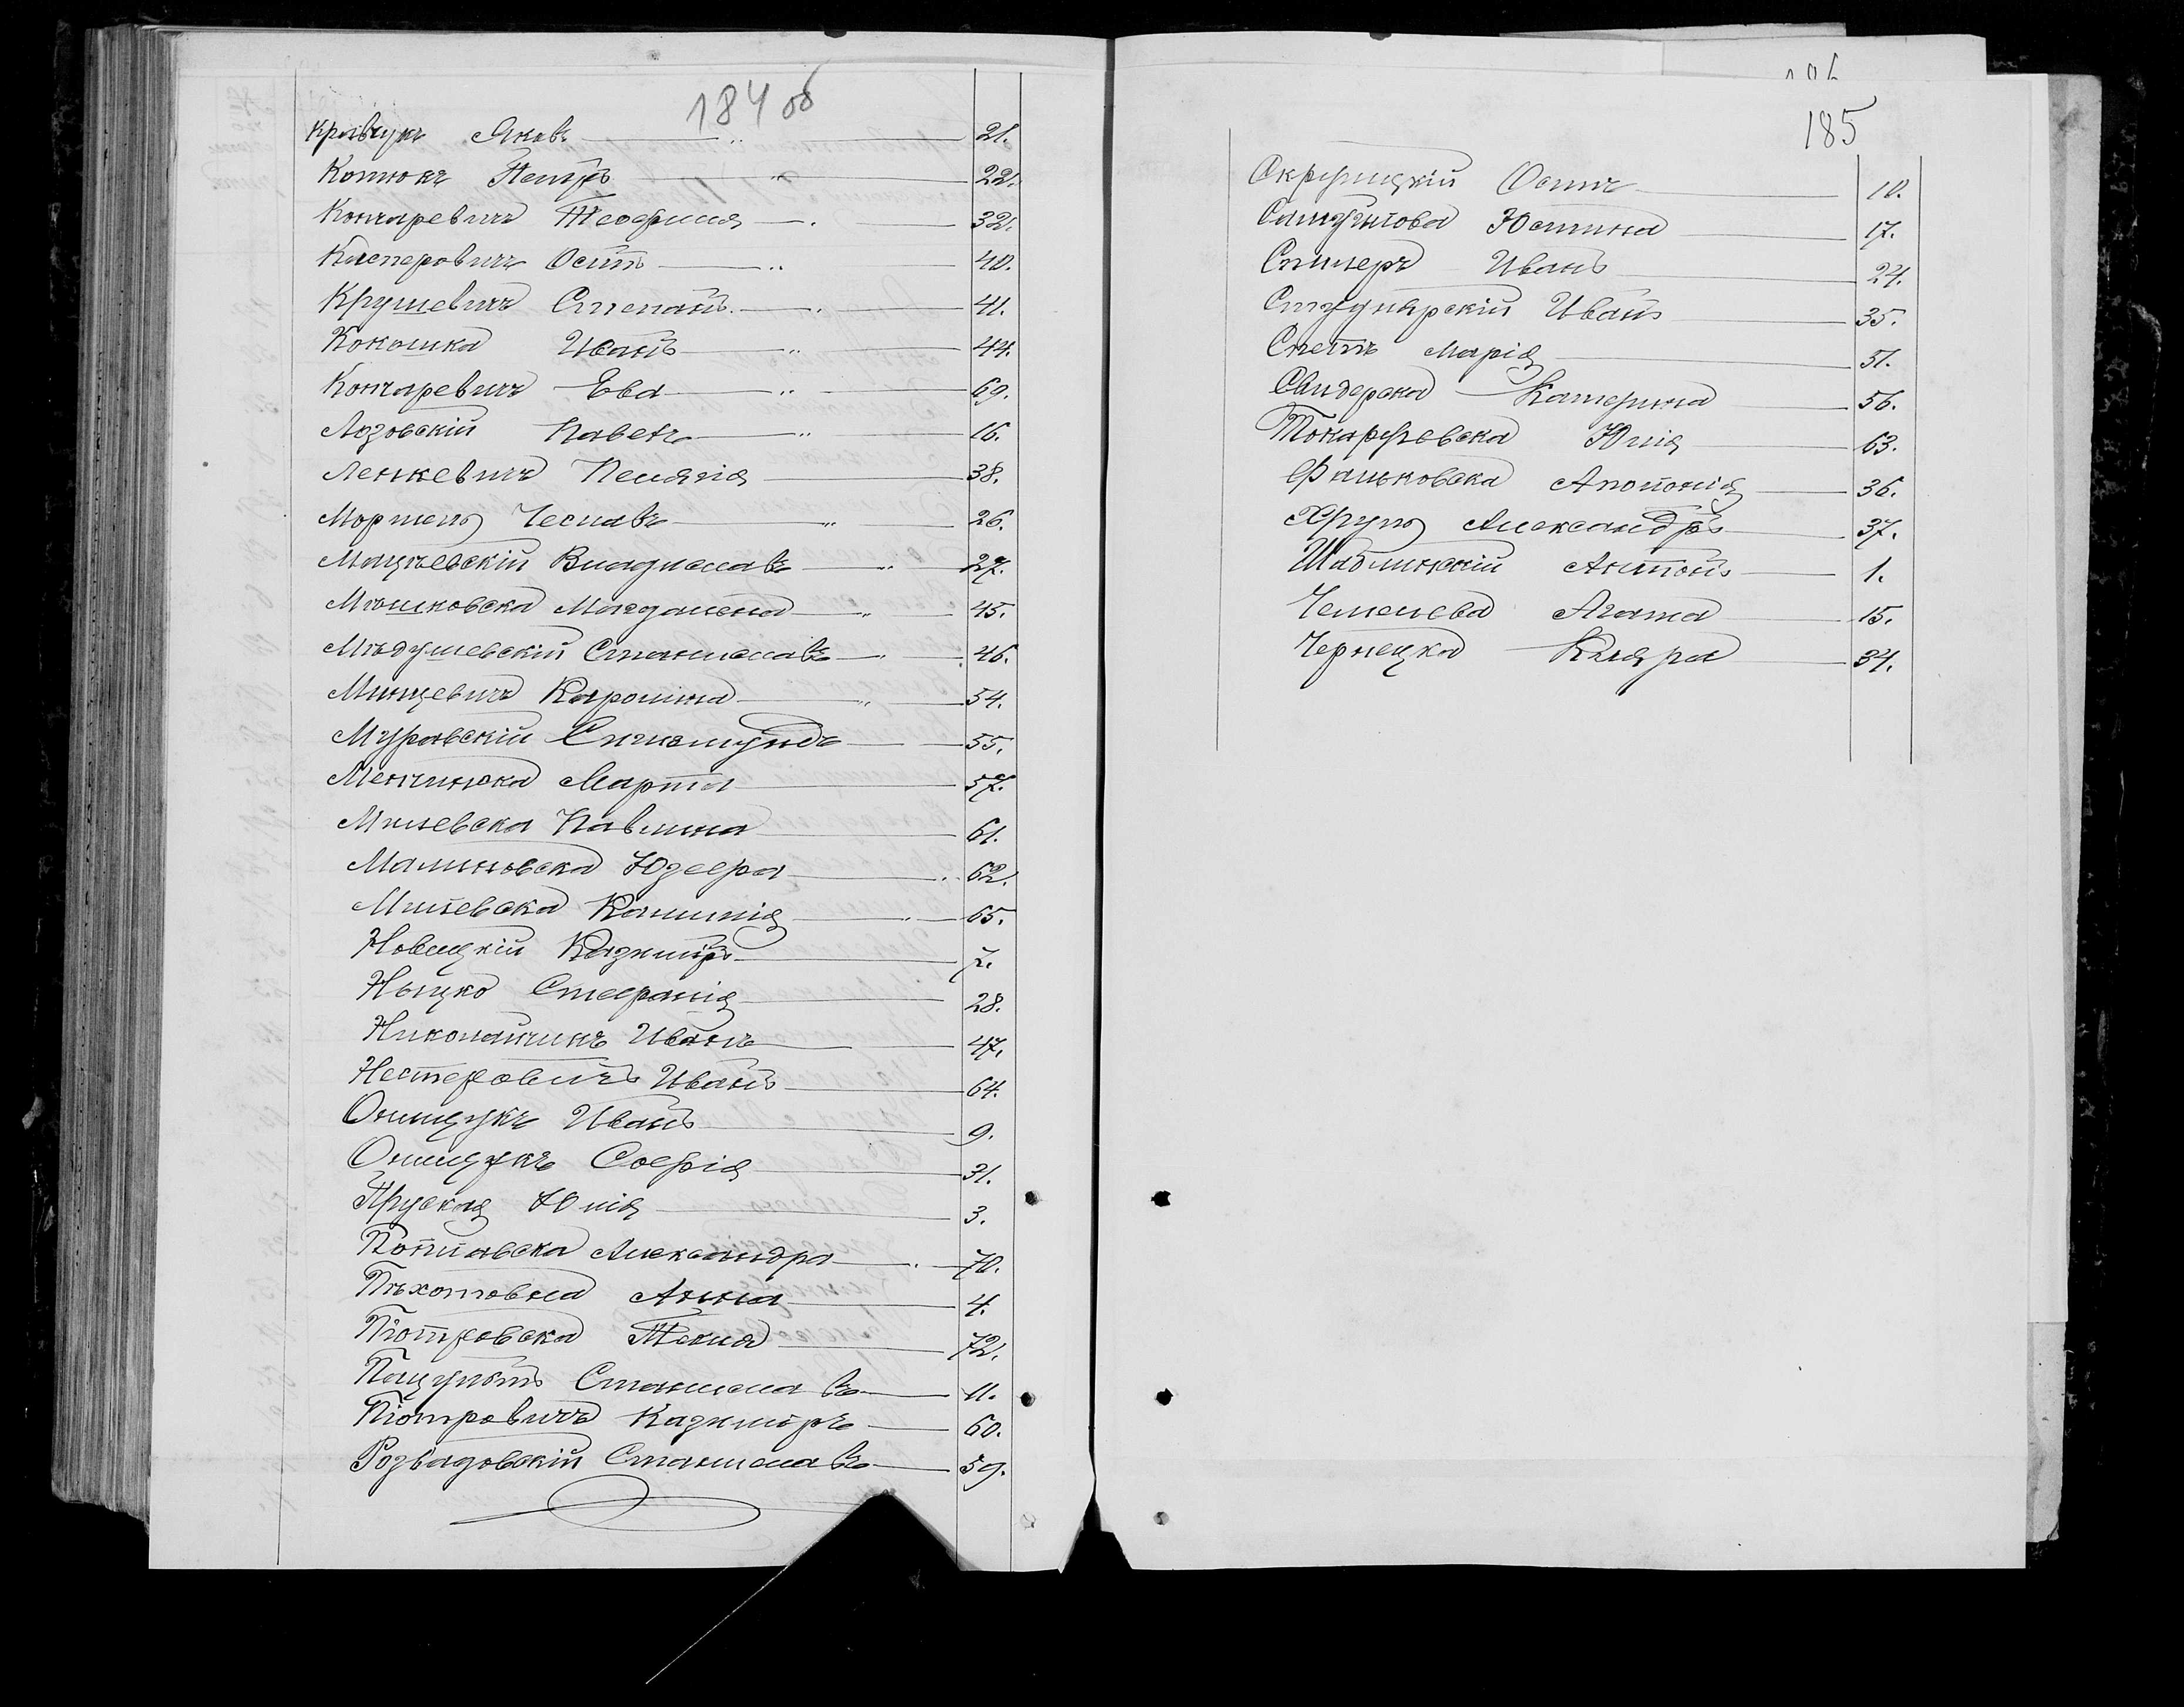 184 об
Кравчукъ Яковъ 21.
Котюкъ Петръ 22.
Кончаревичъ Теофиля 32.
Касперовичъ Осипъ 40.
Крушевичъ Степанъ 41.
Кокошка Иванъ 44.
Кончаревичъ Ева 69.
Лозовскій Павелъ 16.
Ленкевичъ Пелягія 38.
Чеславъ 26.
Владиславъ 27.
Магдалена 45.
Станиславъ 46.
Минцевичъ Каролина 54.
Муравскій Сигизмундъ 55.
Марта 57.
Милевска Павлина 61.
Малиновска Юзефа 62.
Милевска Камилія 65.
Новицкій Казиміръ 7.
Ныцко Стефанія 28.
Николайчикъ Иванъ 47.
Нестеровичъ Иванъ 64.
Онищукъ Иванъ 9.
Онищукъ Софія 31.
Пруская Юлія 3.
Александра 70.
Пѣхотовна Анна 4.
Піотровска Текля 72.
Станиславъ 11.
Піотровичъ Казиміръ 60.
Розвадовскій Станиславъ 59.
185
Скрупицкій Осипъ 10.
Юстина 17.
Иванъ 24.
Иванъ 35.
Марія 51.
Свидерска Катерина 56.
Токаржевска Юлія 63.
Фальковска Аполонія 36.
Александръ 37.
Шаблинскій Антонъ 1.
Агата 15.
Чернецка Кляра 34.